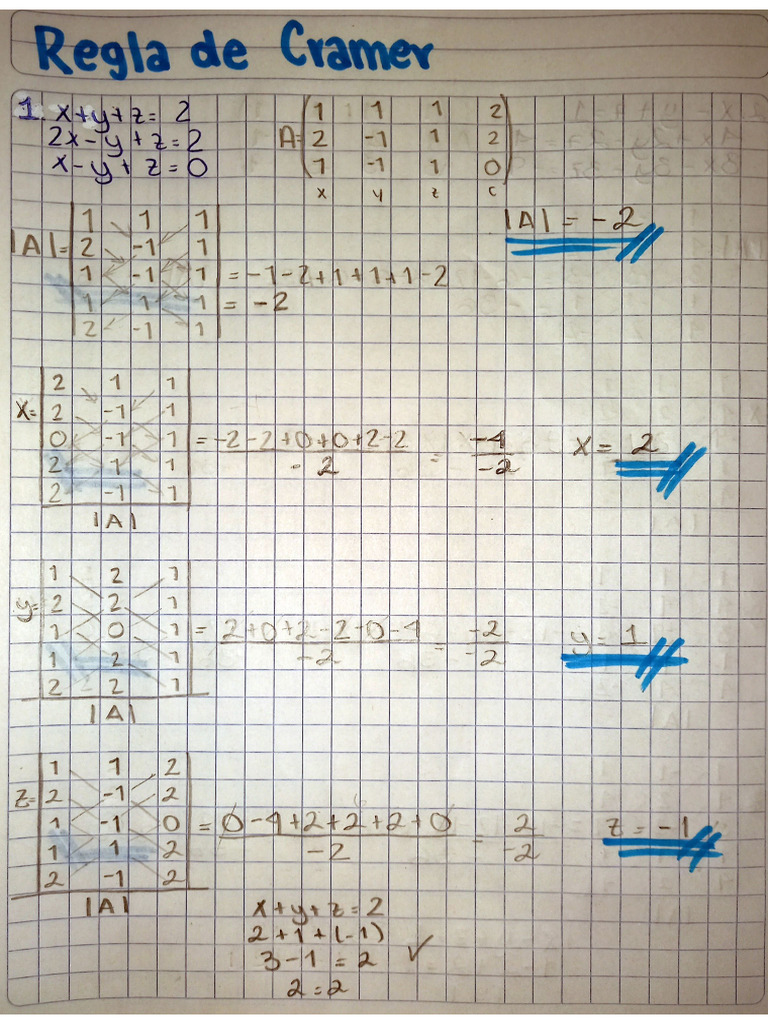 Regla de Cramer
1. x+y+z= 2
2x-y+z=2
x-y+z=0
A= 1 1 1 2
2 -1 1 2
1 -1 1 0
x y z c
|A|= 1 1 1
2 -1 1
1 -1 1 = -1-2+1+1+1-2
1 1 1 = -2
2 -1 1
|A| = -2
x= 2 1 1
2 -1 1
0 -1 1 = -2-2+0+0+2-2 = -4
2 1 1 -2 -2
2 -1 1
|A|
x = 2
y= 1 2 1
2 2 1
1 0 1 = 2+0+2-2-0-4 = -2
1 2 1 -2 -2
2 2 1
|A|
y = 1
z= 1 1 2
2 -1 2
1 -1 0 = 0-4+2+2+2+0 = 2
1 1 2 -2 -2
2 -1 2
|A|
z = -1
x+y+z=2
2+1+(-1)
3-1=2 ✓
2=2